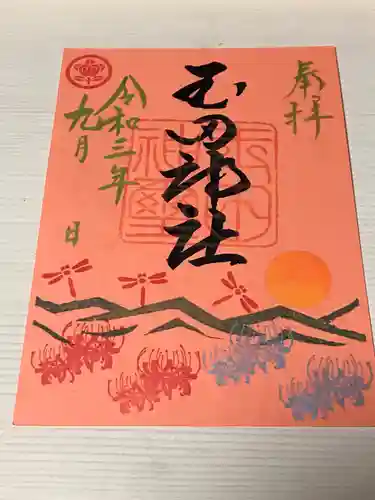 奉拝
玉田神社
令和三年
九月 日